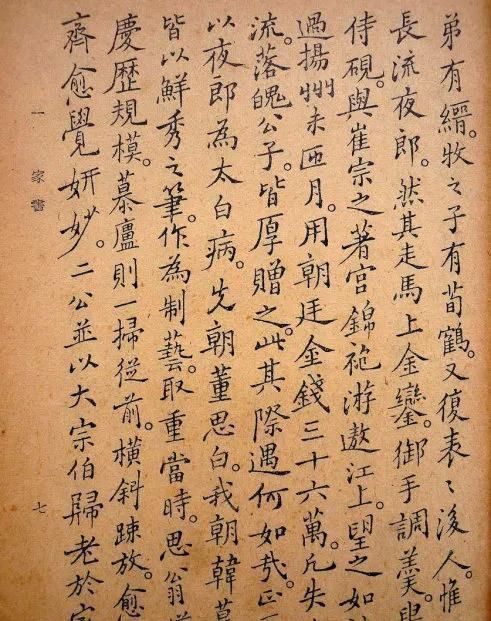 弟有縉。牧之子有荀鶴。又復表〻後人。惟
長流夜郎。然其走馬上金鑾。御手調羹。
侍硯。與崔宗之著宮錦袍游遨江上。望之如
過揚州未匝月。用朝廷金錢三十六萬。凡失
流。落魄公子。皆厚贈之。此其際遇何如哉。正
以夜郎為太白病。先朝董思白。我朝韓
皆以鮮秀之筆。作為制藝。取重當時。思翁
慶歷規模。慕廬則一掃從前。橫斜踈放。愈
齊愈覺妍妙。二公並以大宗伯歸老於
一 家書 七